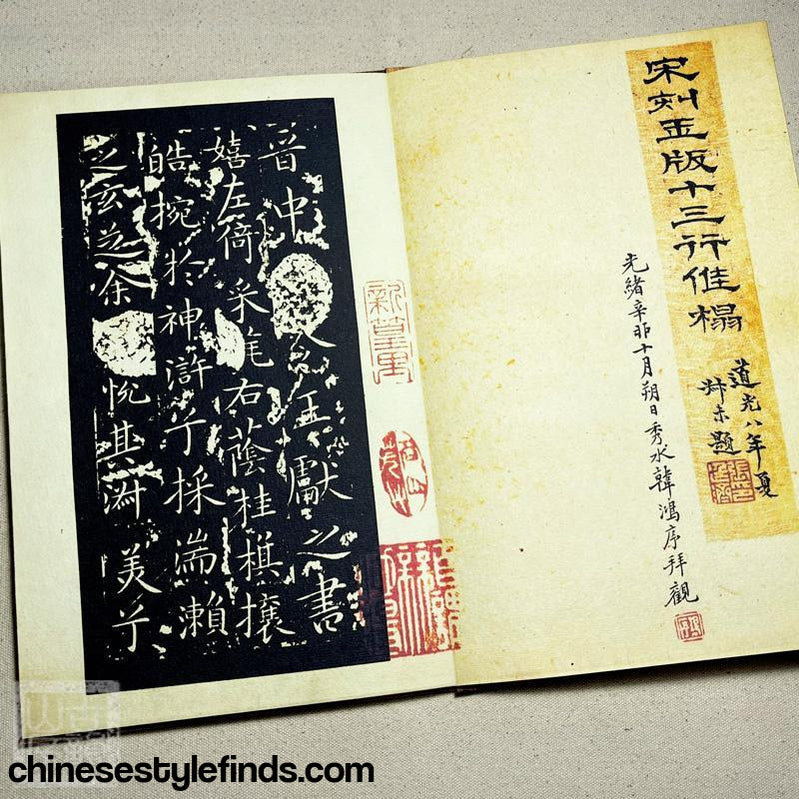 宋刻玉版十三行佳榻
道光八年夏
叔未題
光緒辛卯十月朔日秀水韓鴻序拜觀
晉中 令王獻之書
嬉左倚采旄右蔭桂旗攘
皓捥於神滸兮採湍瀨
之玄芝余 悅其淑美兮
chinesestylefinds.com